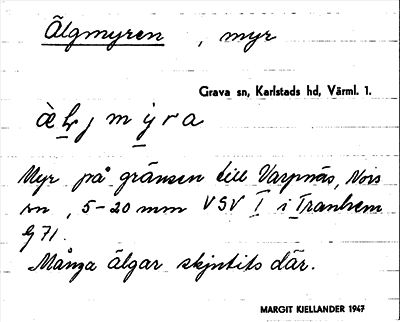 Älgmyren , myr
Grava sn, Karlstads hd, Värml. 1.
Myr på gränsen till Varpnäs, Nors
sn, 5–20 mm VSV I i Tranhem
G 71.
Många älgar skjutits där.
MARGIT KJELLANDER 1947